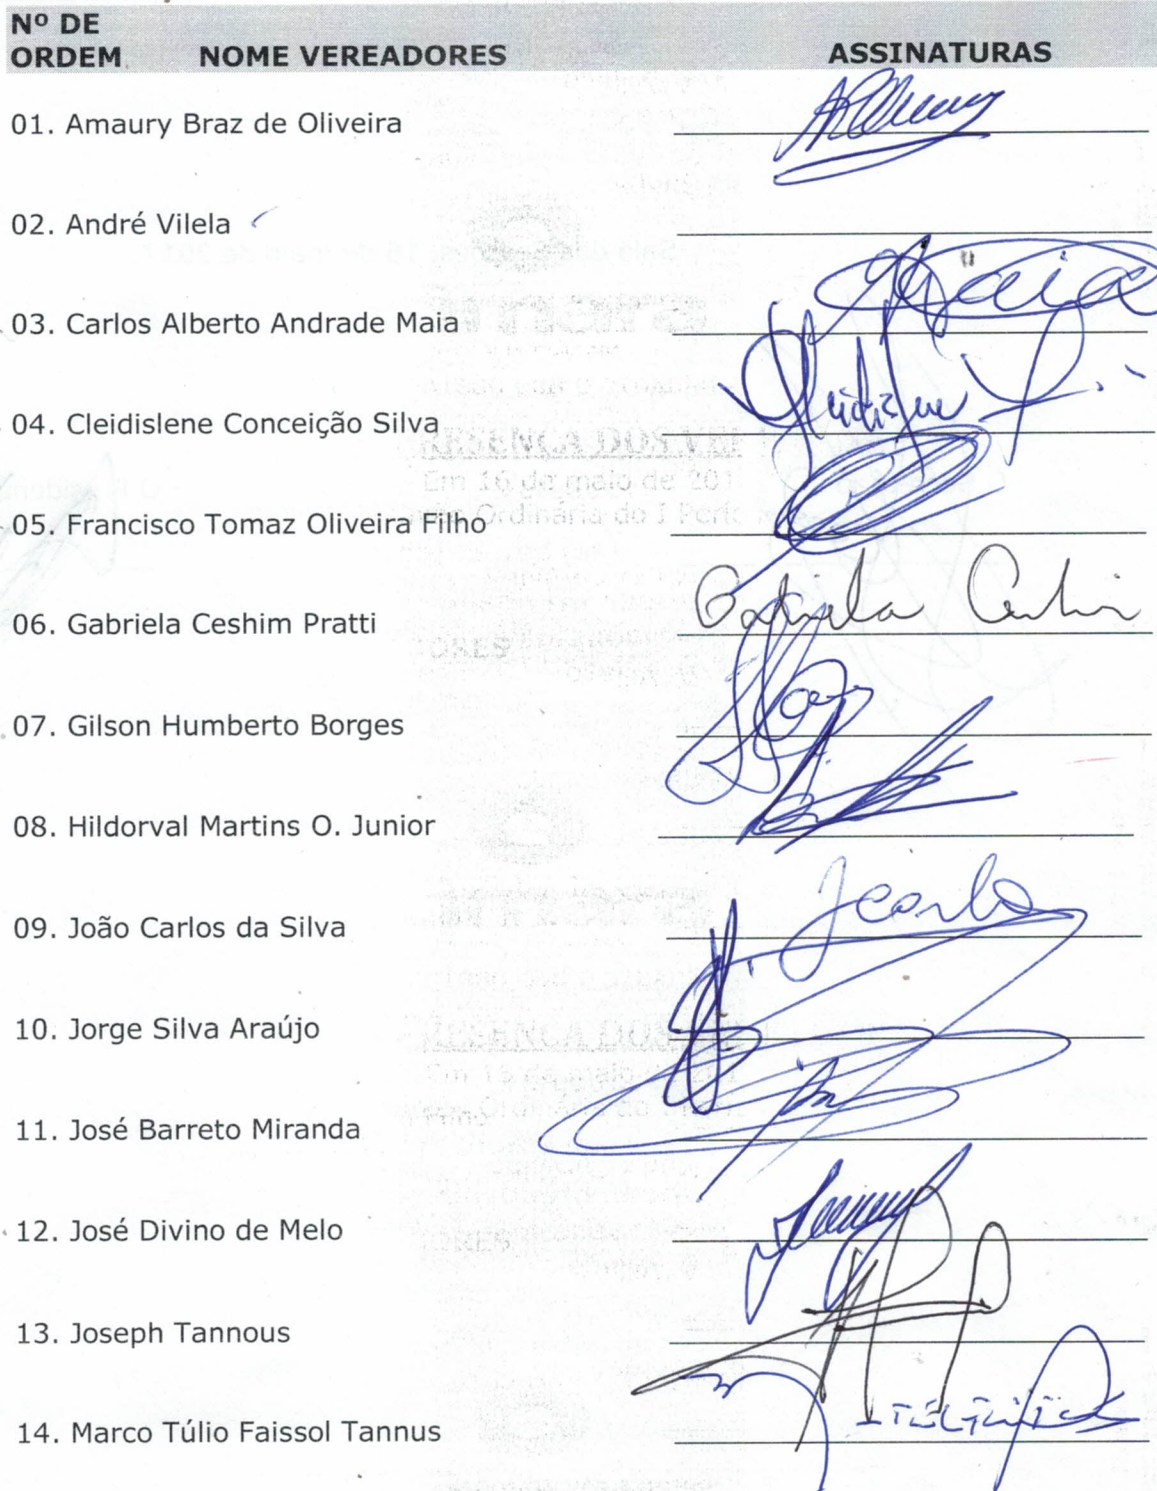 Nº DE
ORDEM NOME VEREADORES ASSINATURAS
01. Amaury Braz de Oliveira
02. André Vilela
03. Carlos Alberto Andrade Maia Maia
04. Cleidislene Conceição Silva
05. Francisco Tomaz Oliveira Filho
06. Gabriela Ceshim Pratti Gabriela Ceshim
07. Gilson Humberto Borges
08. Hildorval Martins O. Junior
09. João Carlos da Silva Jcarlos
10. Jorge Silva Araújo
11. José Barreto Miranda
12. José Divino de Melo
13. Joseph Tannous
14. Marco Túlio Faissol Tannus